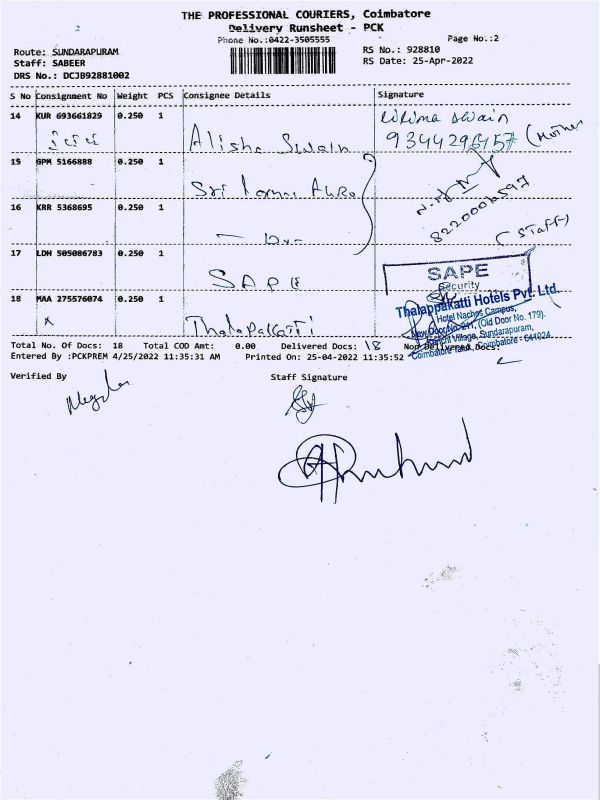 THE PROFESSIONAL COURIERS, Coimbatore
Delivery Runsheet - PCK
Phone No.:0422-3505555
Page No.:2
Route: SUNDARAPURAM
RS No.: 928810
Staff: SABEER
RS Date: 25-Apr-2022
DRS No.: DCJB92881002
S No Consignment No Weight PCS Consignee Details Signature
14 KUR 693661829 0.250 1
Alisha Swain
Swain
9344296457 (Mother
15 GPM 5166888 0.250 1
Sri
16 KRR 5368695 0.250 1
8220006597
(Staff)
17 LDH 505086783 0.250 1
SAPE
SAPE
Security
18 MAA 275576074 0.250 1
x
Thalapakatti
Thalappakatti Hotels Pvt. Ltd.
Hotel Naches Campus,
New Door No. 211, (Old Door No. 179).
Village, Sundarapuram,
Coimbatore Taluk, Coimbatore - 641024.
Total No. Of Docs: 18 Total COD Amt: 0.00 Delivered Docs: 18 Non Delivered Docs:
Entered By :PCKPREM 4/25/2022 11:35:31 AM Printed On: 25-04-2022 11:35:52
Verified By
Staff Signature